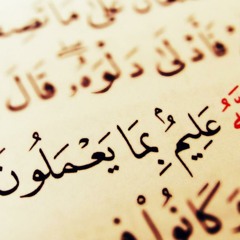 عَلَىٰ مَا
فَأَدْلَىٰ دَلْوَهُۥ قَالَ
عَلِيمٌۢ بِمَا يَعْمَلُونَ
وَكَانُوا۟